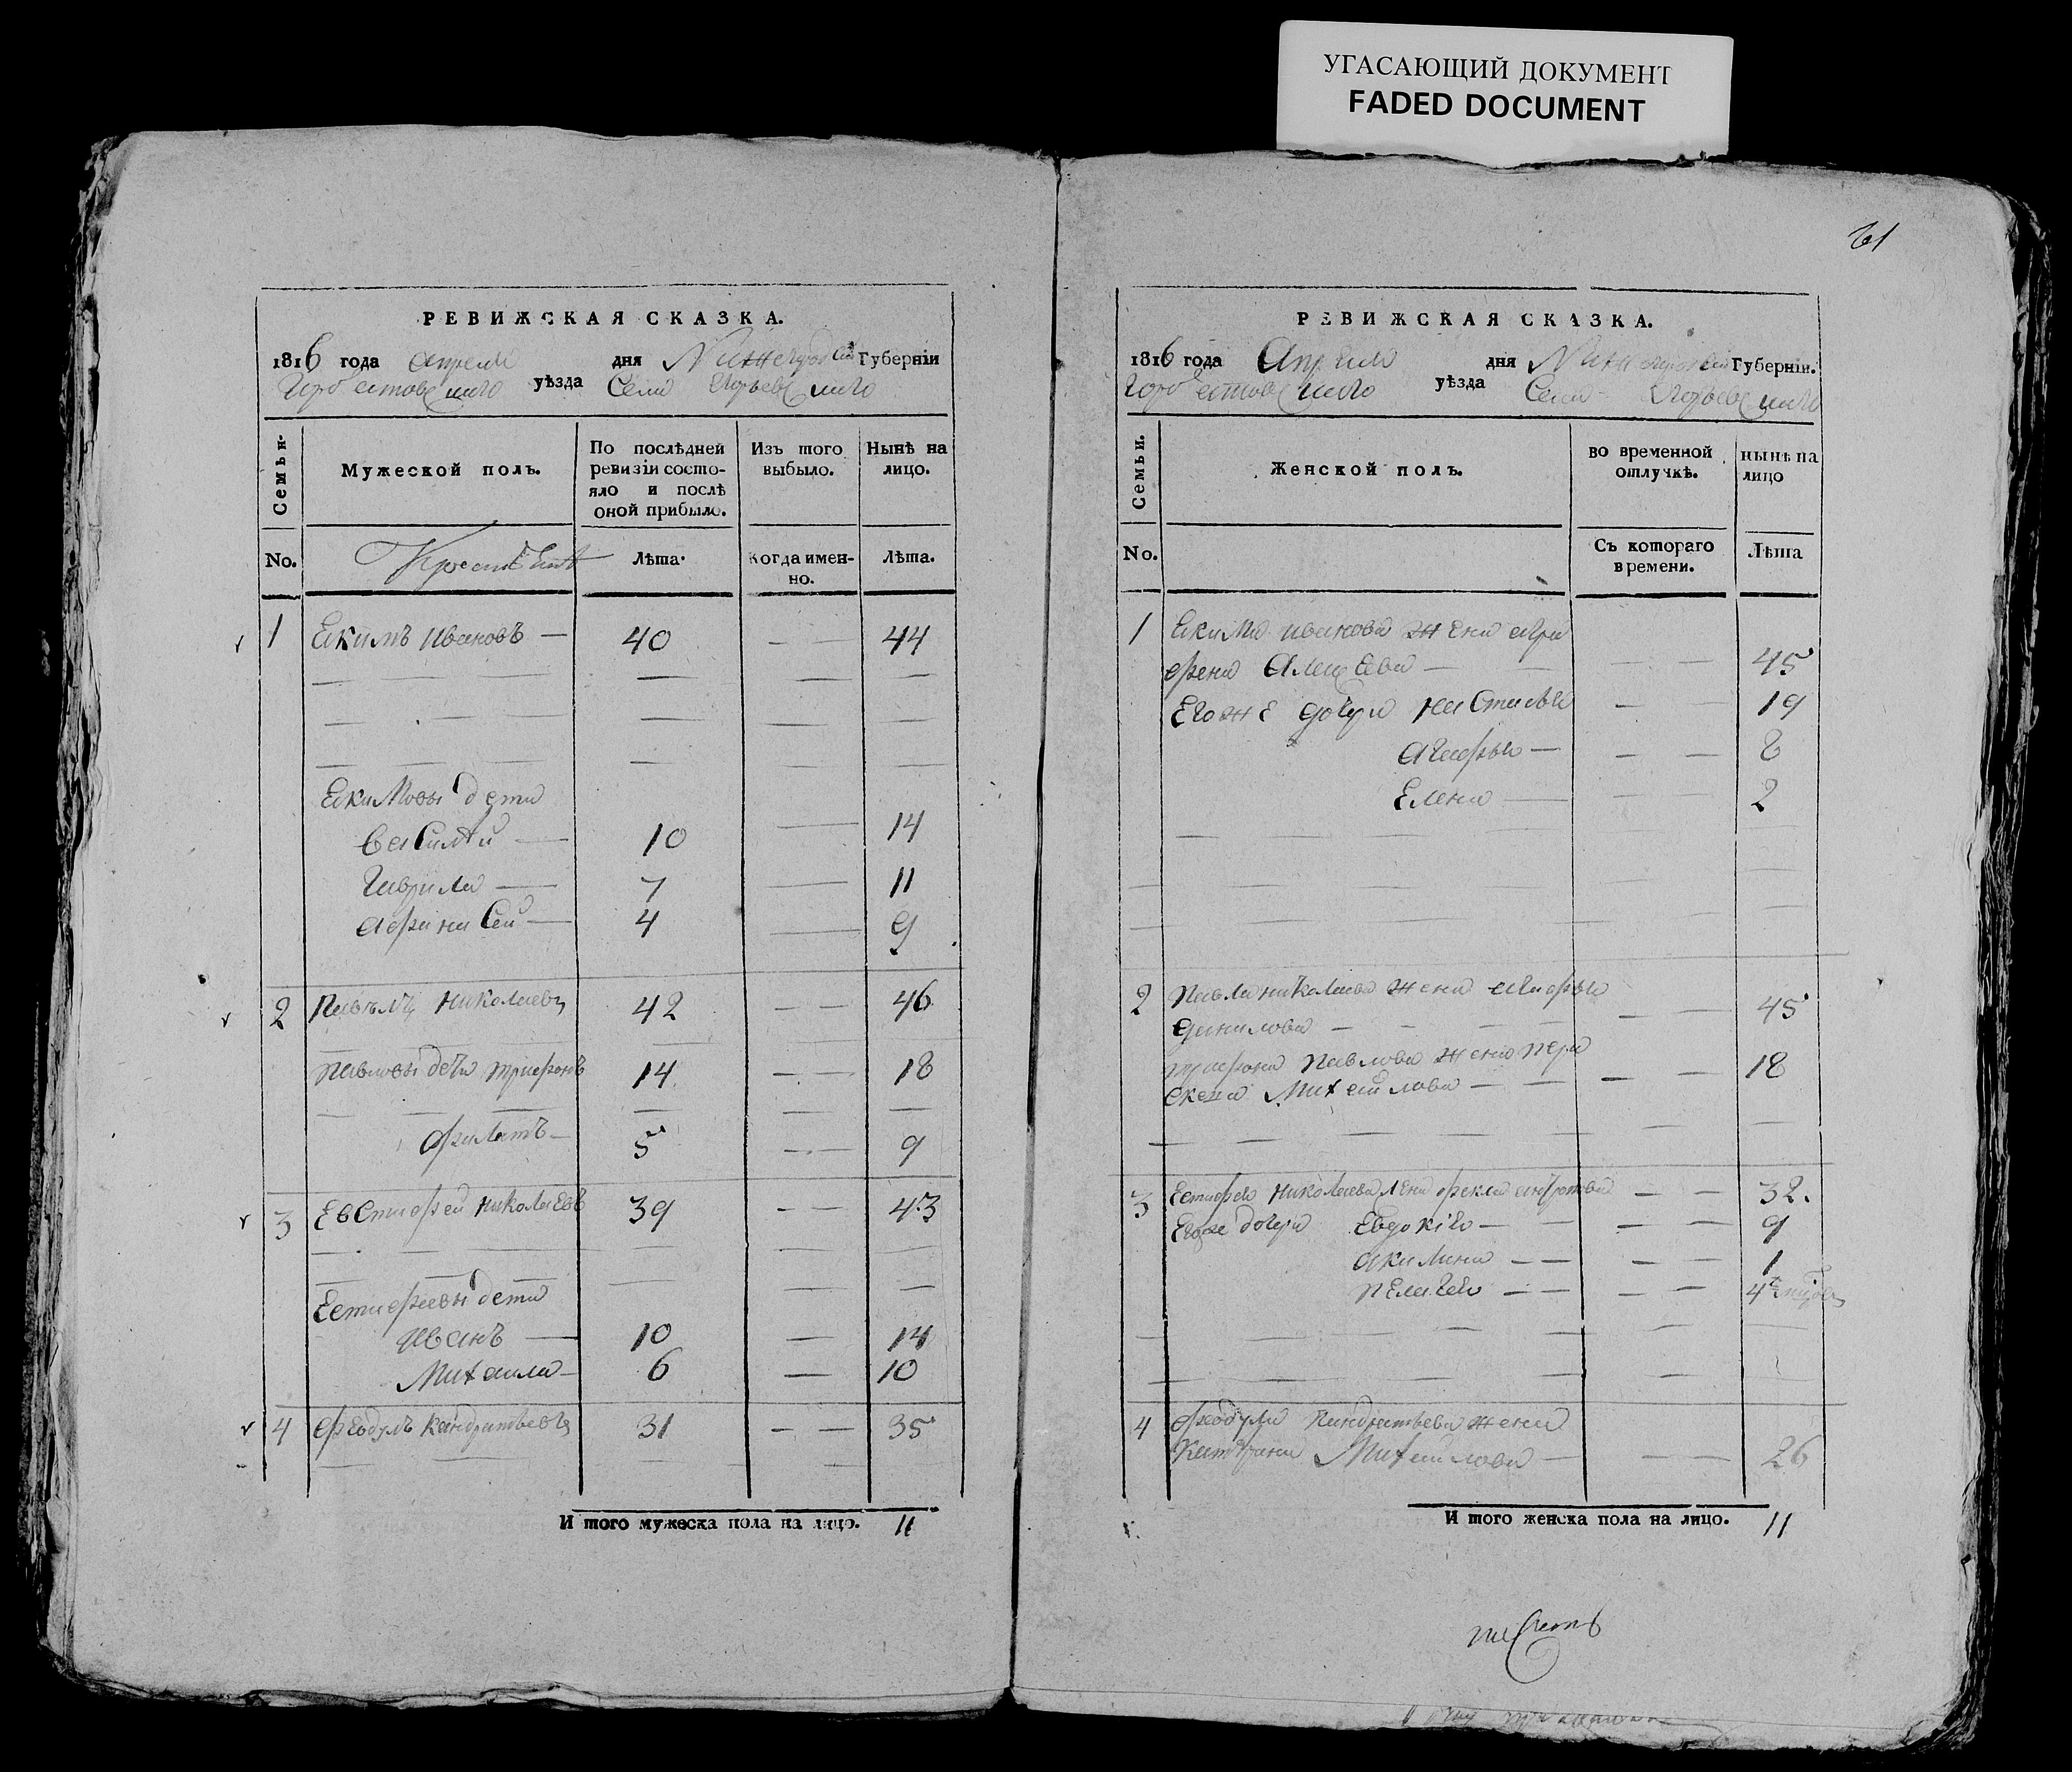 УГАСАЮЩИЙ ДОКУМЕНТ
FADED DOCUMENT
РЕВИЖСКАЯ СКАЗКА.
1816 года апреля дня Нижегородской Губерніи
Горбатовскаго уѣзда Села
Семьи.
Мужеской полъ.
По послѣдней ревизіи состояло и послѣ оной прибыло.
Изъ того выбыло.
Нынѣ на лицо.
No.
Лѣта.
Когда именно.
Лѣта.
1 Екимъ Ивановъ — 40 — — 44
Екимовы дети
Василий — 10 — 14
Гаврила — 7 — 11
Афанасей — 4 — 9
2 Павелъ Николаевъ 42 — — 46
Павловы дети Трифонъ 14 — — 18
Филатъ — 5 — — 9
3 Евстифей Николаевъ 39 — — 43
Естифеевы дети
Иванъ — 10 — 14
Михаила — 6 — 10
4 Феодулъ Кандратьевъ 31 — — 35
И того мужеска пола на лицо. 11
61
РЕВИЖСКАЯ СКАЗКА.
1816 года Апреля дня Нижегородской Губерніи.
Горбатовскаго уѣзда Села
Семьи.
Женской полъ.
во временной отлучкѣ.
нынѣ на лицо
No.
Съ котораго времени.
Лѣта
1 Екима Иванова жена Агра
фена — — — 45
Его же дочери Настасья — — 19
Агафья — — — 8
Елена — — — 2
2 Павла Николаева жена Агафья
Данилова — — — — 45
Трифона Павлова жена Пра
Михайлова — — — — 18
3 Николаева жена Фекла — — 32.
Его же дочери Евдокія — — — — 9
Акилина — — — — 1
Пелагея — — — — 4
4 Феодула Кандратьева жена
Михайлова — — — 26
И того женска пола на лицо. 11